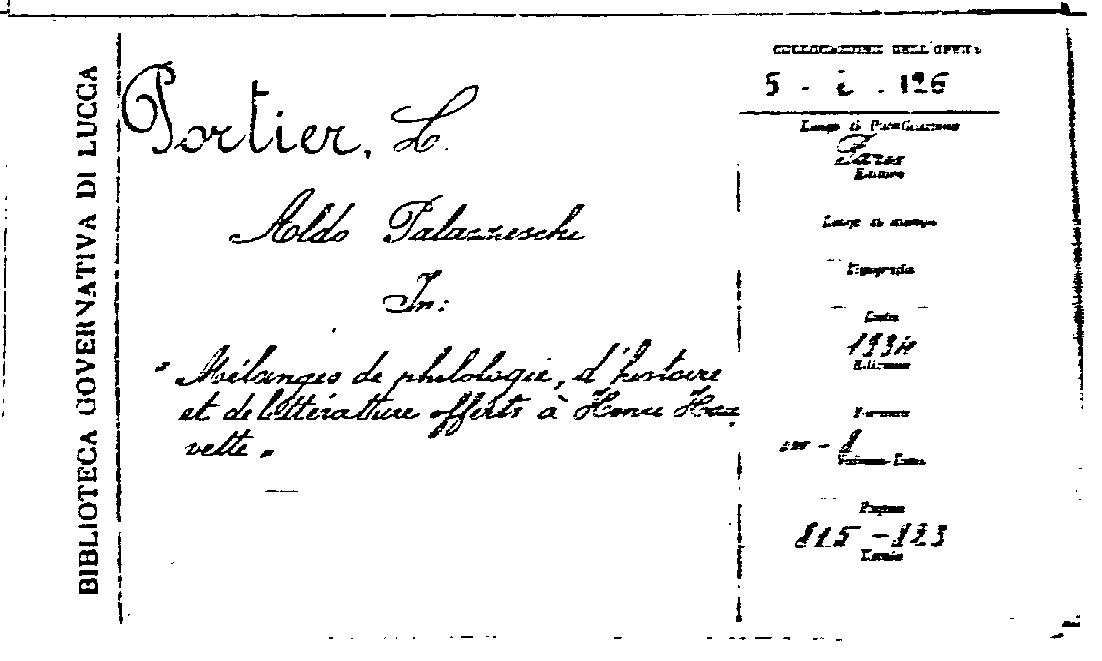 BIBLIOTECA GOVERNATIVA DI LUCCA
Portier, L.
Aldo Palazzeschi
In:
" Mélanges de philologie, d'histoire
et de littérature offerts à Henri Hau
vette "
COLLOCAZIONE DELL'OPERA
5 - i . 126
Luogo di Pubblicazione
Paris
Editore
Luogo di stampa
Tipografia
Data
1934
Edizione
Formato
in-8
Pagine
815-823